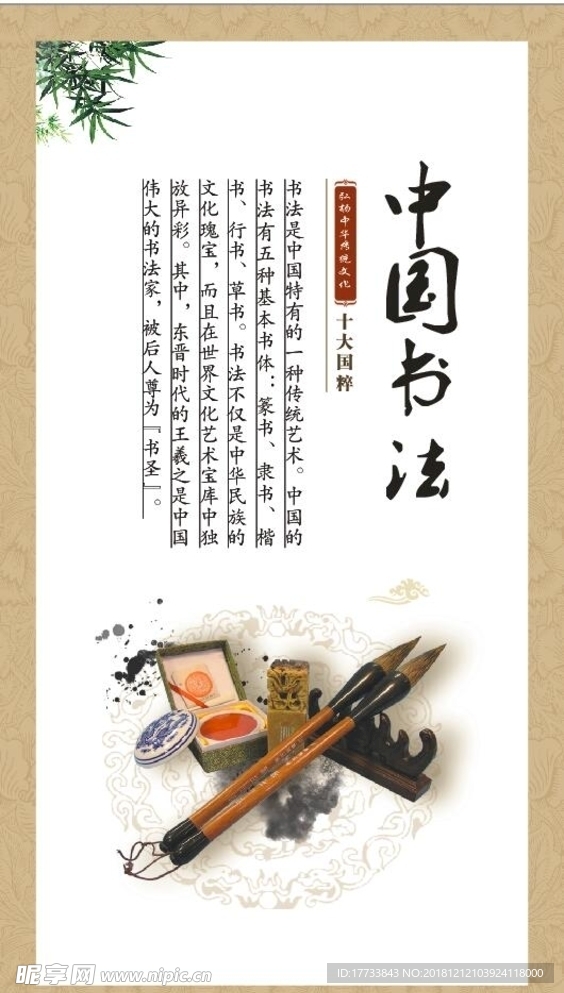 中国书法
弘扬中华传统文化
十大国粹
书法是中国特有的一种传统艺术。中国的
书法有五种基本书体：篆书、隶书、楷
书、行书、草书。书法不仅是中华民族的
文化瑰宝，而且在世界文化艺术宝库中独
放异彩。其中，东晋时代的王羲之是中国
伟大的书法家，被后人尊为『书圣』。
昵享网 www.nipic.cn
ID:17733843 NO:20181212103924118000